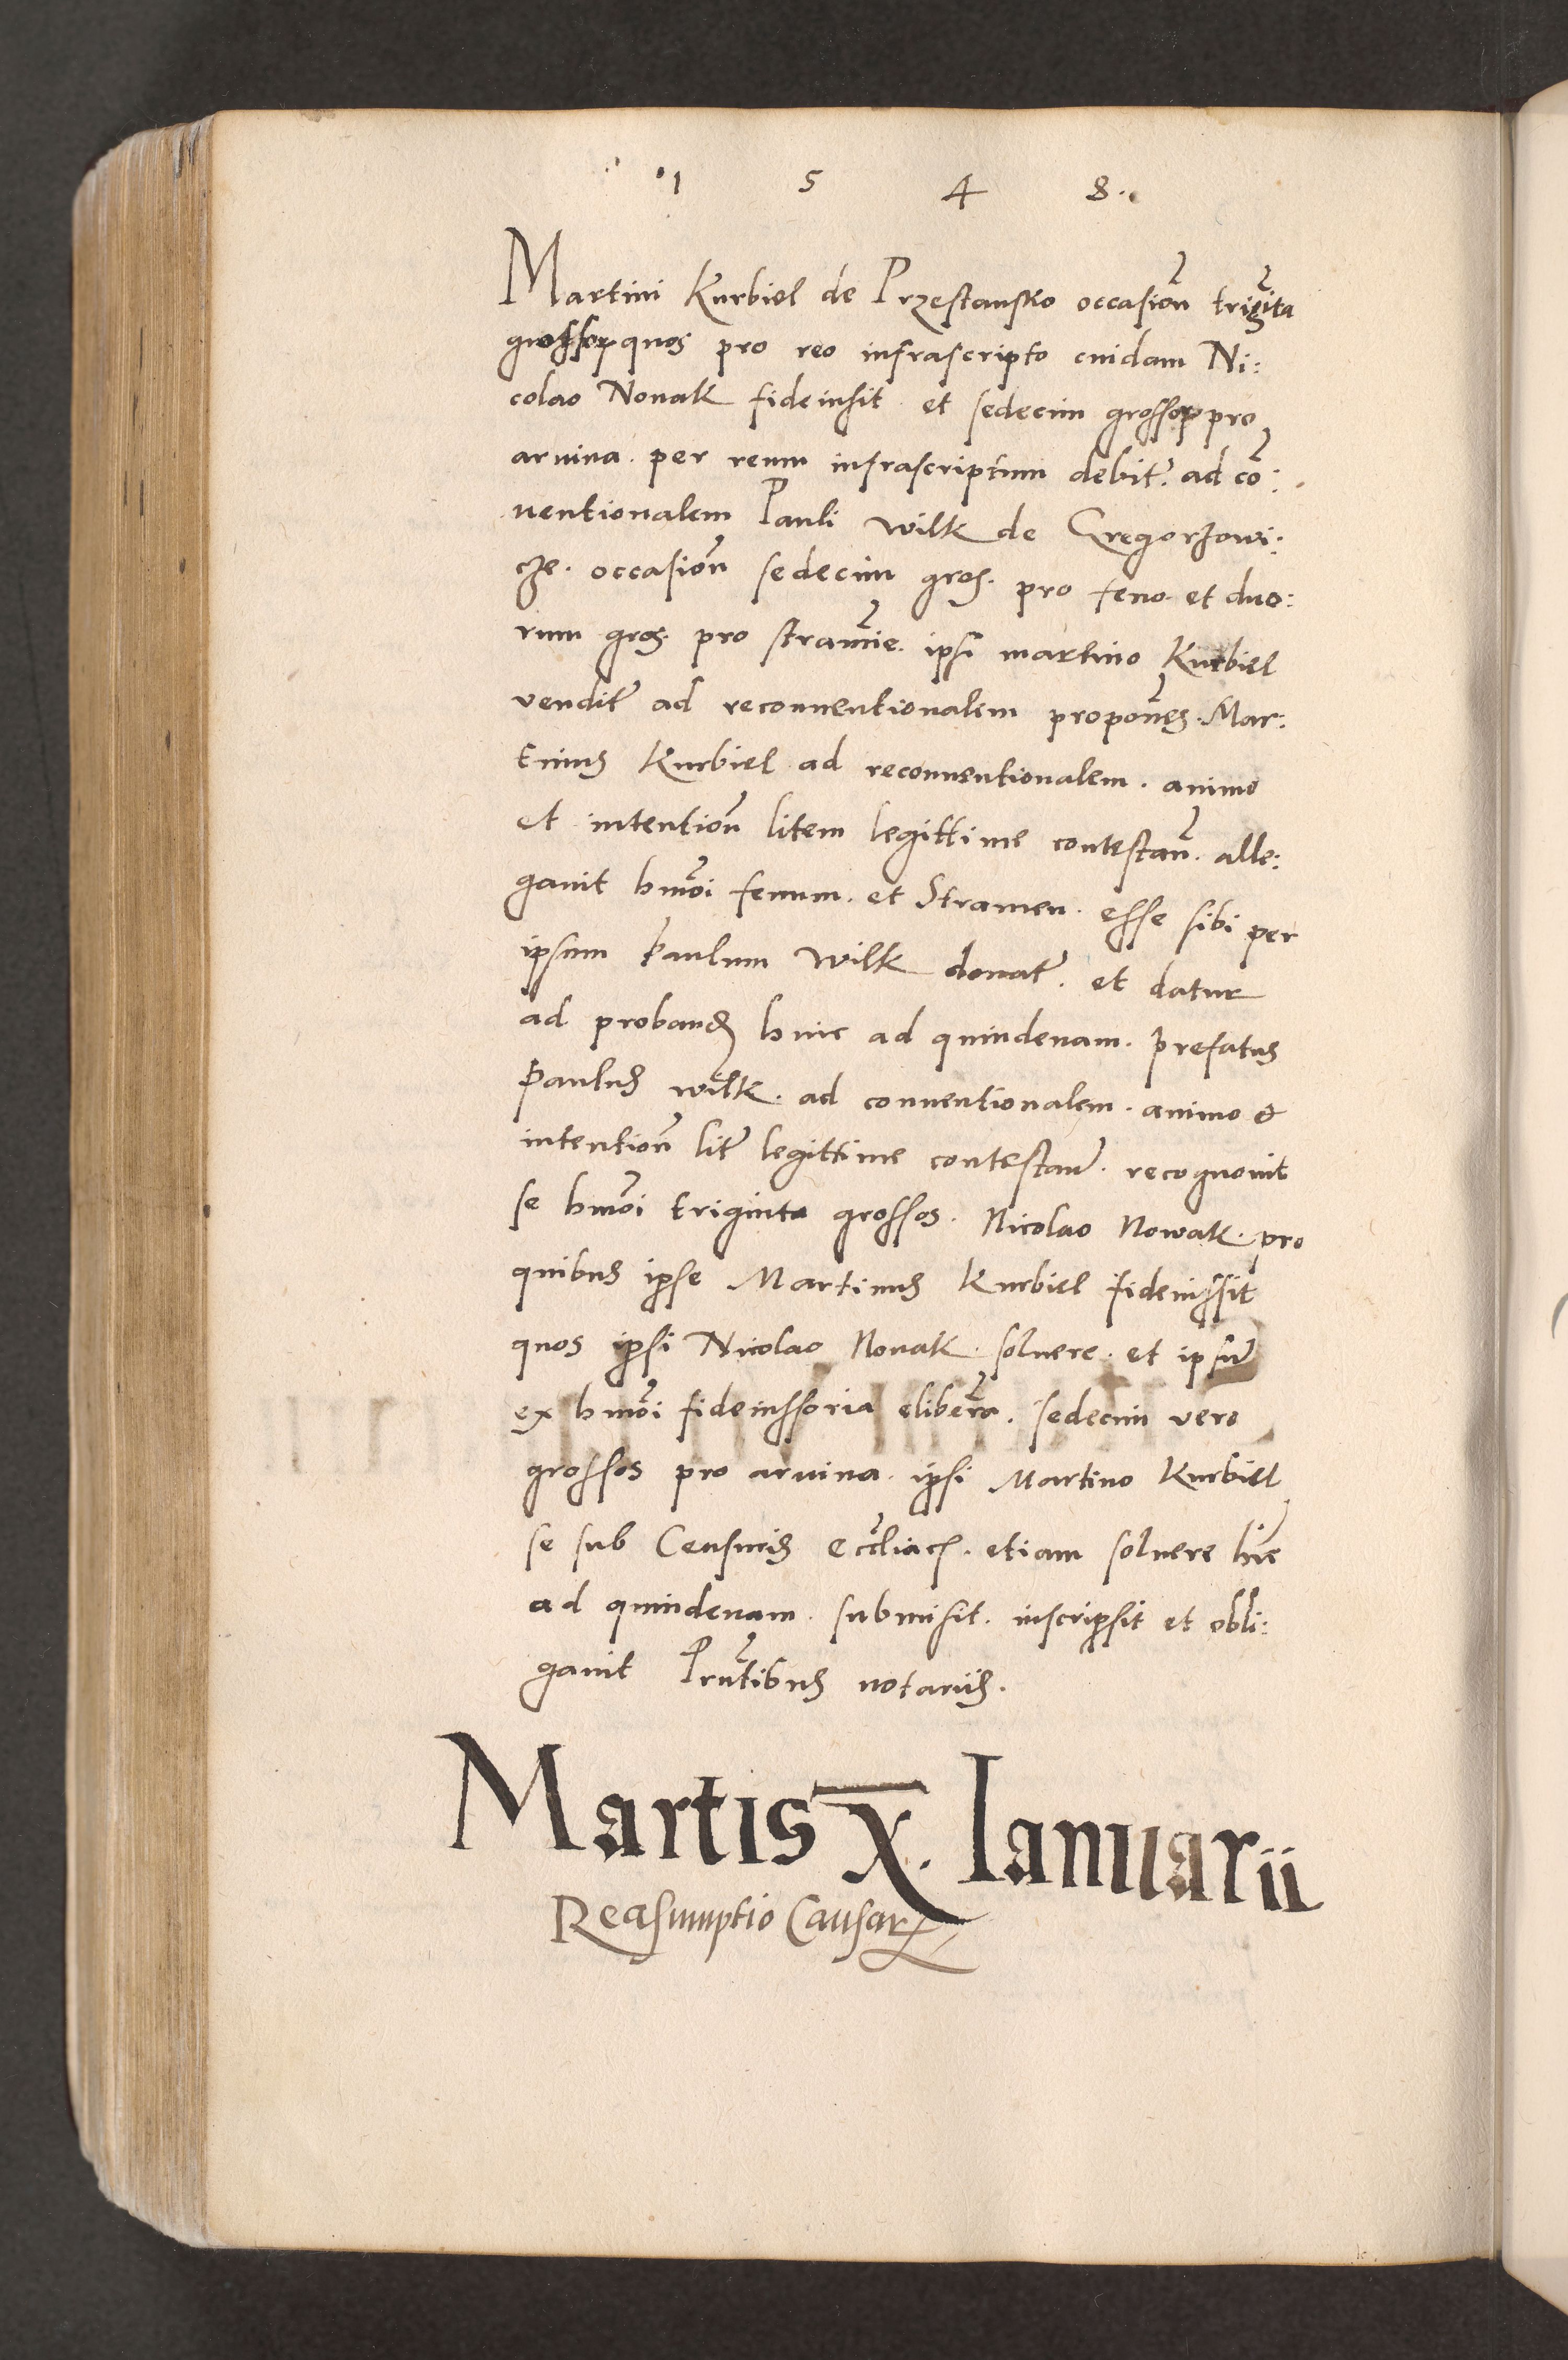 1 5 4 8.
Martini Kurbiel de Przestansko occasioñ trigĩta
grossoꝝ quos pro reo infrascripto cuidam Ni:
colao Nouak fideiusit et sedecim grossoꝝ pro
aruina. per reum infrascriptum debit̃. ad cõ:
uentionalem Pauli Wilk de Gregorzowi:
cze. occasioñ sedecim gros. pro feno et duo:
rum gros. pro stramĩe. ipsi martino Kurbiel
vendit̃ ad reconuentionalem propoñes. Mar:
tinus Kurbiel ad reconuentionalem. animo
et intentioñ litem legittime contestañ. alle:
gauit hmõi fenum. et Stramen. esse sibi per
ipsum paulum Wilk donat̃. et datur
ad proband̃ hinc ad quindenam. prefatus
paulus wilk. ad conuentionalem. animo &
intentioñ lit̃ legittime contestañ. recognouit
se hmõi triginta grossos. Nicolao Nowak. pro
quibus ipse Martinus Kurbiel fideiussit
quos ipsi Nicolao Nouak. soluere. et ipsũ
ex hmõi fideiussoria eliberã. sedecim vero
grossos pro aruina. ipsi Martino Kurbiel
se sub Censuris eccl̃iacs. etiam soluere hĩc
ad quindenam. submisit. inscripsit et obli:
gauit Prñtibus notariis.
Martis X. Ianuarii
Reasumptio Causarꝝ